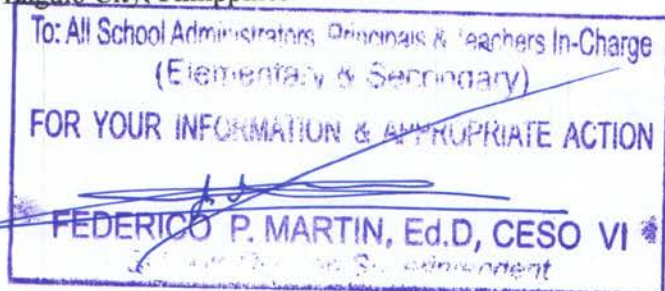 City, Philippines
To: All School Administrators, Principals & Teachers In-Charge
(Elementary & Secondary)
FOR YOUR INFORMATION & APPROPRIATE ACTION
FEDERICO P. MARTIN, Ed.D, CESO VI
Superintendent